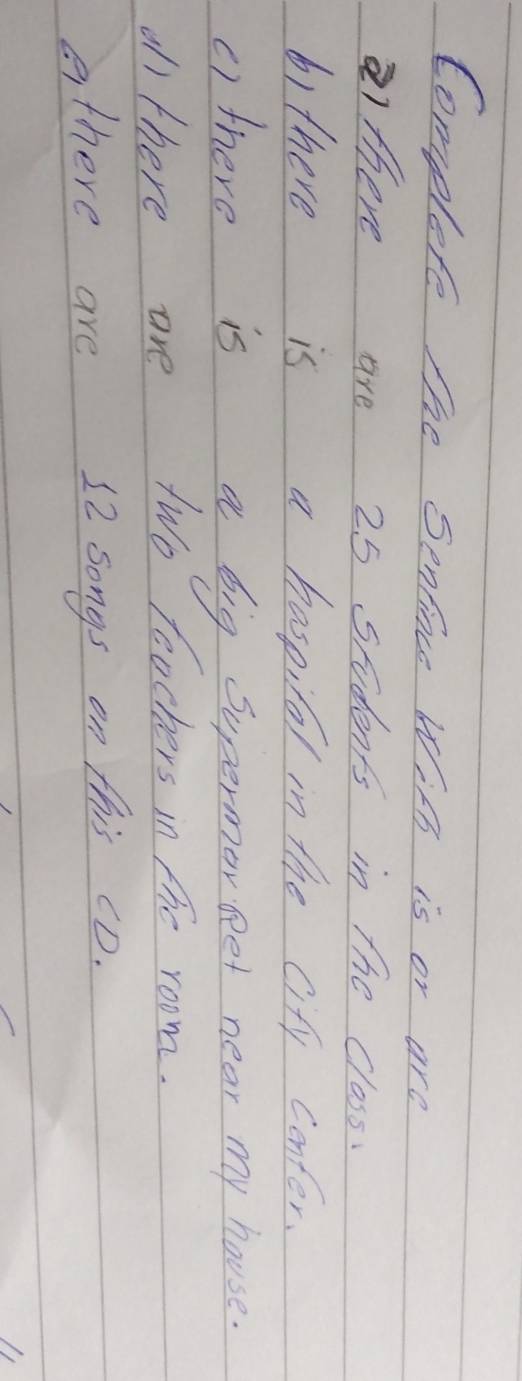 Complete the Sentinc With is or are
a) there are 25 Students in the Class.
b) there is a hospital in the City Center.
c) there is a big Supermarket near my house.
d) there are two Teachers in the room.
e) there are 12 songs on this CD.